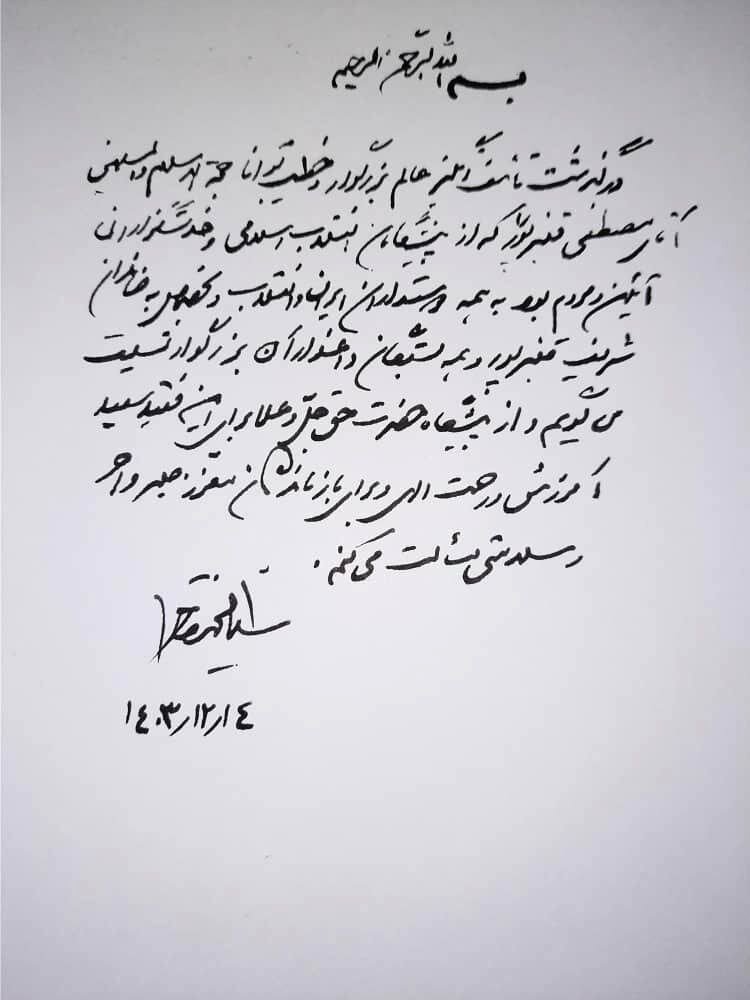 بسم الله الرحمن الرحیم
درگذشت تأسف انگیز عالم بزرگوار و خطیب توانا حجة الاسلام والمسلمین
آقای مصطفی قنبرپور که از پیشگامان انقلاب اسلامی و خدمتگزاران
آئین و مردم بود به همه دوستداران ایران و انقلاب و بخصوص به خاندان
شریف قنبرپور و همه بستگان و عزاداران بزرگوار تسلیت
می گویم و از پیشگاه حضرت حق جلّ و علا برای این فقید سعید
آمرزش و رحمت الهی و برای بازماندگان معزز صبر و اجر
و سلامتی مسألت می کنم.
سید محمد خاتمی
۱٤۰۳٫۱۲٫۱٤